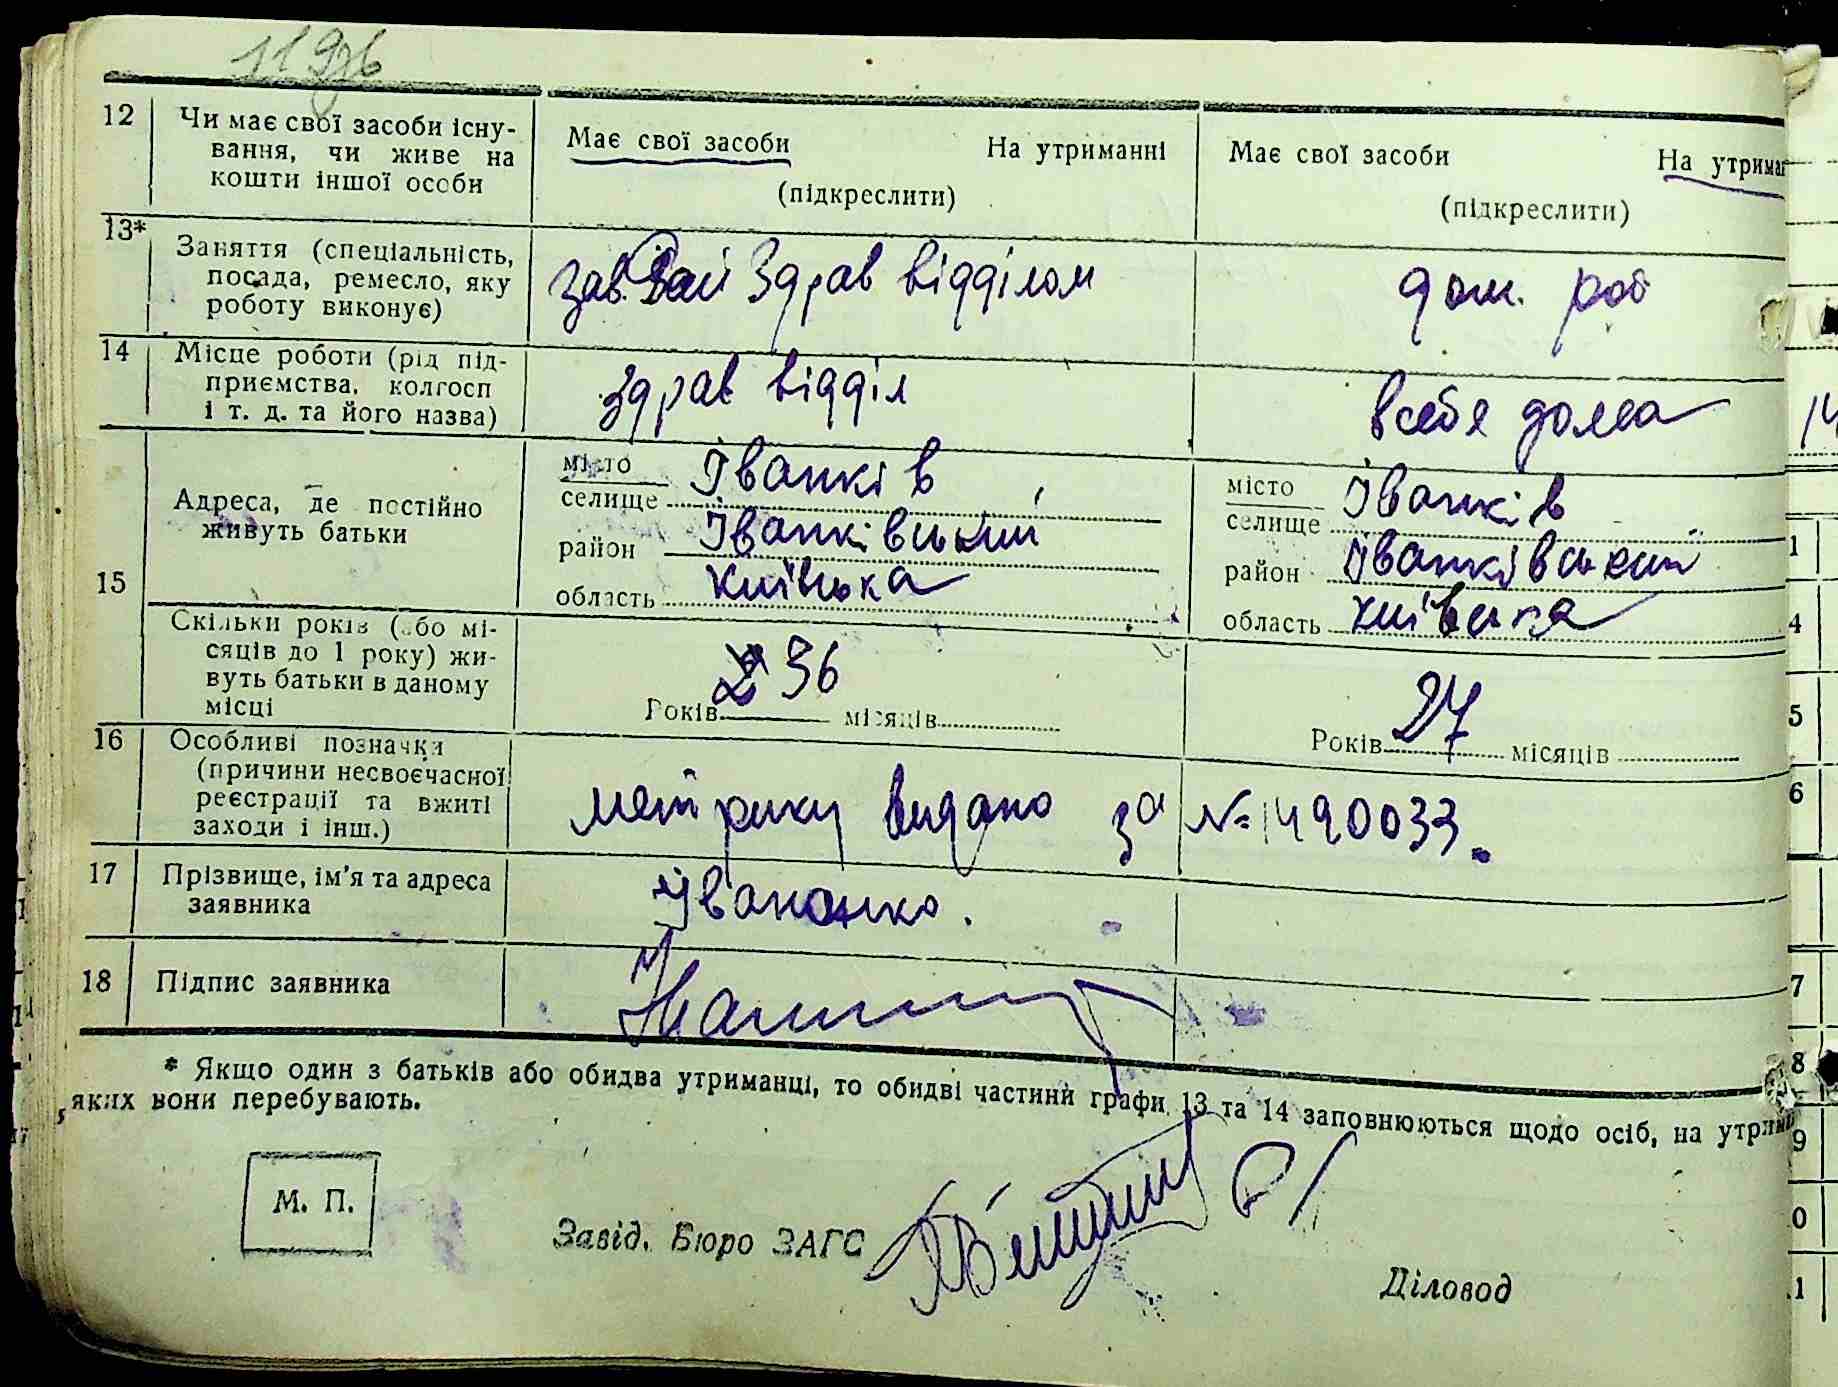 12 Чи має свої засоби існу-
вання, чи живе на
кошти іншої особи
Має свої засоби На утриманні
(підкреслити)
Має свої засоби На утриман
(підкреслити)
13* Заняття (спеціальність,
посада, ремесло, яку
роботу виконує)
зав. Рай Здрав відділом
дом. роб
14 Місце роботи (рід під-
приємства, колгосп
і т. д. та його назва)
Здрав відділ
в себя дома
15
Адреса, де постійно
живуть батьки
місто Іванків
селище
район Іванківський
область Київська
місто Іванків
селище
район Іванківський
область Київська
Скільки років (або мі-
сяців до 1 року) жи-
вуть батьки в даному
місці
36
Років місяців
27
Років місяців
16 Особливі позначки
(причини несвоєчасної
реєстрації та вжиті
заходи і інш.)
метрику видано за № 1490033.
17 Прізвище, ім'я та адреса
заявника
18 Підпис заявника
* Якщо один з батьків або обидва утриманці, то обидві частини графи 13 та 14 заповнюються щодо осіб, на утрим
яких вони перебувають.
М. П.
Завід. Бюро ЗАГС
Діловод